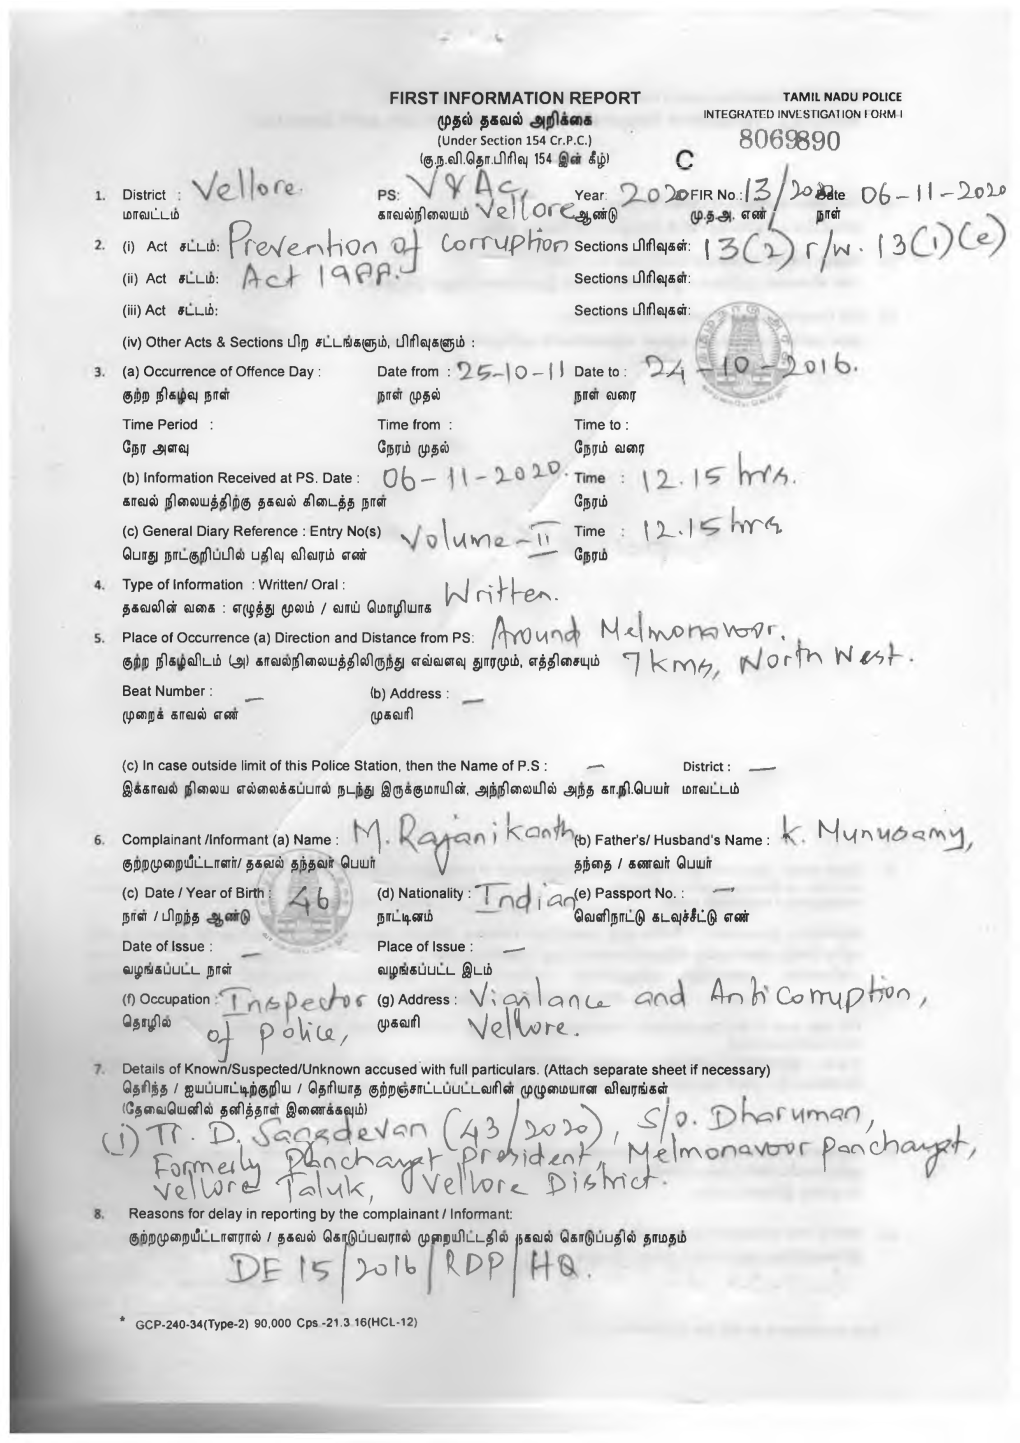 FIRST INFORMATION REPORT
TAMIL NADU POLICE
முதல் தகவல் அறிக்கை
INTEGRATED INVESTIGATION FORM-I
(Under Section 154 Cr.P.C.)
(கு.ந.வி.தொ.பிரிவு 154 இன் கீழ்)
C 8069890
1. District : Vellore. PS: V & AC, Year: 2020 FIR No.: 13/2020 Date 06-11-2020
மாவட்டம் காவல்நிலையம் Vellore ஆண்டு மு.த.அ. எண் நாள்
2. (i) Act சட்டம்: Prevention of Corruption Sections பிரிவுகள்: 13(2) r/w. 13(1)(e)
(ii) Act சட்டம்: Act 1988. Sections பிரிவுகள்:
(iii) Act சட்டம்: Sections பிரிவுகள்:
(iv) Other Acts & Sections பிற சட்டங்களும், பிரிவுகளும் :
3. (a) Occurrence of Offence Day : Date from : 25-10-11 Date to : 24-10-2016.
குற்ற நிகழ்வு நாள் நாள் முதல் நாள் வரை
Time Period : Time from : Time to :
நேர அளவு நேரம் முதல் நேரம் வரை
(b) Information Received at PS. Date : 06-11-2020. Time : 12.15 hrs.
காவல் நிலையத்திற்கு தகவல் கிடைத்த நாள் நேரம்
(c) General Diary Reference : Entry No(s) Volume-II Time : 12.15 hrs
பொது நாட்குறிப்பில் பதிவு விவரம் எண் நேரம்
4. Type of Information : Written/ Oral : Written.
தகவலின் வகை : எழுத்து மூலம் / வாய் மொழியாக
5. Place of Occurrence (a) Direction and Distance from PS: Around Melmonavoor,
குற்ற நிகழ்விடம் (அ) காவல்நிலையத்திலிருந்து எவ்வளவு தூரமும், எத்திசையும் 7 kms, North West.
Beat Number : — (b) Address : —
முறைக் காவல் எண் முகவரி
(c) In case outside limit of this Police Station, then the Name of P.S : — District : —
இக்காவல் நிலைய எல்லைக்கப்பால் நடந்து இருக்குமாயின், அந்நிலையில் அந்த கா.நி.பெயர் மாவட்டம்
6. Complainant /Informant (a) Name : M. Rajanikanth (b) Father's/ Husband's Name : K. Munusamy,
குற்றமுறையீட்டாளர்/ தகவல் தந்தவர் பெயர் தந்தை / கணவர் பெயர்
(c) Date / Year of Birth : 46 (d) Nationality : Indian (e) Passport No. : —
நாள் / பிறந்த ஆண்டு நாட்டினம் வெளிநாட்டு கடவுச்சீட்டு எண்
Date of Issue : — Place of Issue : —
வழங்கப்பட்ட நாள் வழங்கப்பட்ட இடம்
(f) Occupation : Inspector (g) Address : Vigilance and Anti Corruption,
தொழில் of police, முகவரி Vellore.
7. Details of Known/Suspected/Unknown accused with full particulars. (Attach separate sheet if necessary)
தெரிந்த / ஐயப்பாட்டிற்குறிய / தெரியாத குற்றஞ்சாட்டப்பட்டவரின் முழுமையான விவரங்கள்
(தேவையெனில் தனித்தாள் இணைக்கவும்)
(i) Tr. D. Sagadevan (43/2020), S/o. Dharuman,
Formerly Panchayat President, Melmonavoor Panchayat,
Vellore Taluk, Vellore District.
8. Reasons for delay in reporting by the complainant / Informant:
குற்றமுறையீட்டாளரால் / தகவல் கொடுப்பவரால் முறையிட்டதில் தகவல் கொடுப்பதில் தாமதம்
DE 15/2016/RDP/HQ.
* GCP-240-34(Type-2) 90,000 Cps.-21.3.16(HCL-12)